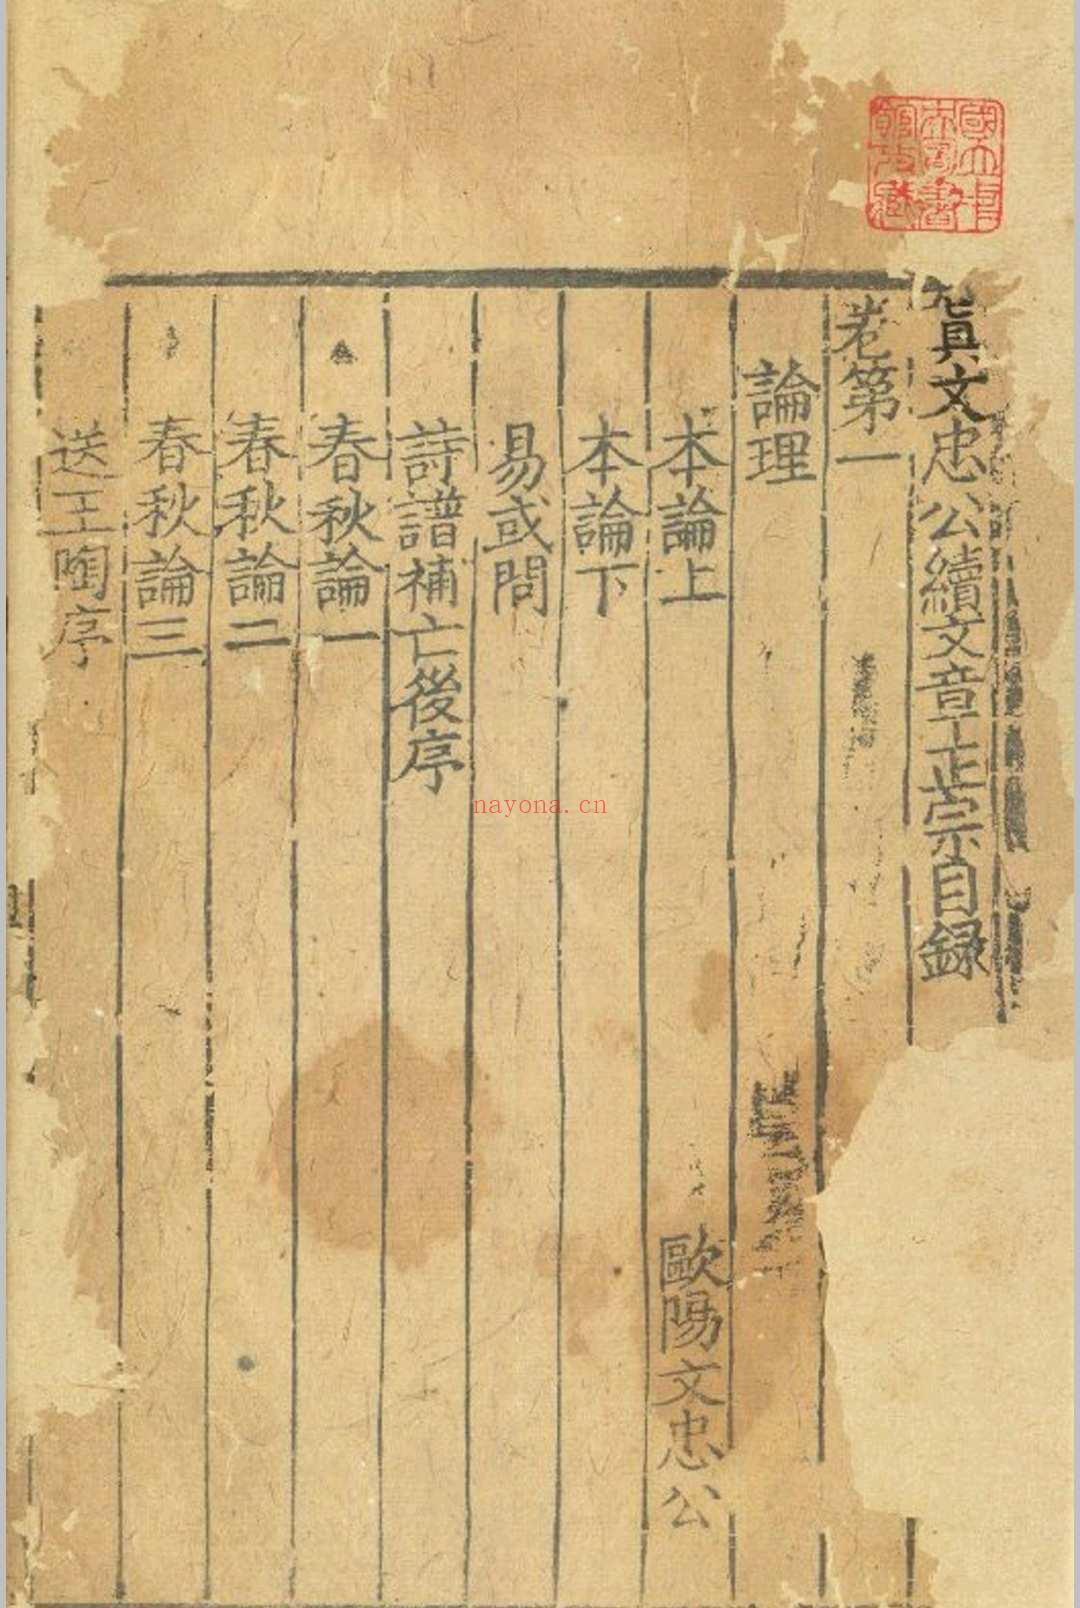 真文忠公續文章正宗目録
卷第一
論理
本論上 歐陽文忠公
本論下
易或問
詩譜補亡後序
春秋論一
春秋論二
春秋論三
送王陶序
國立中央圖書館收藏
nayona.cn